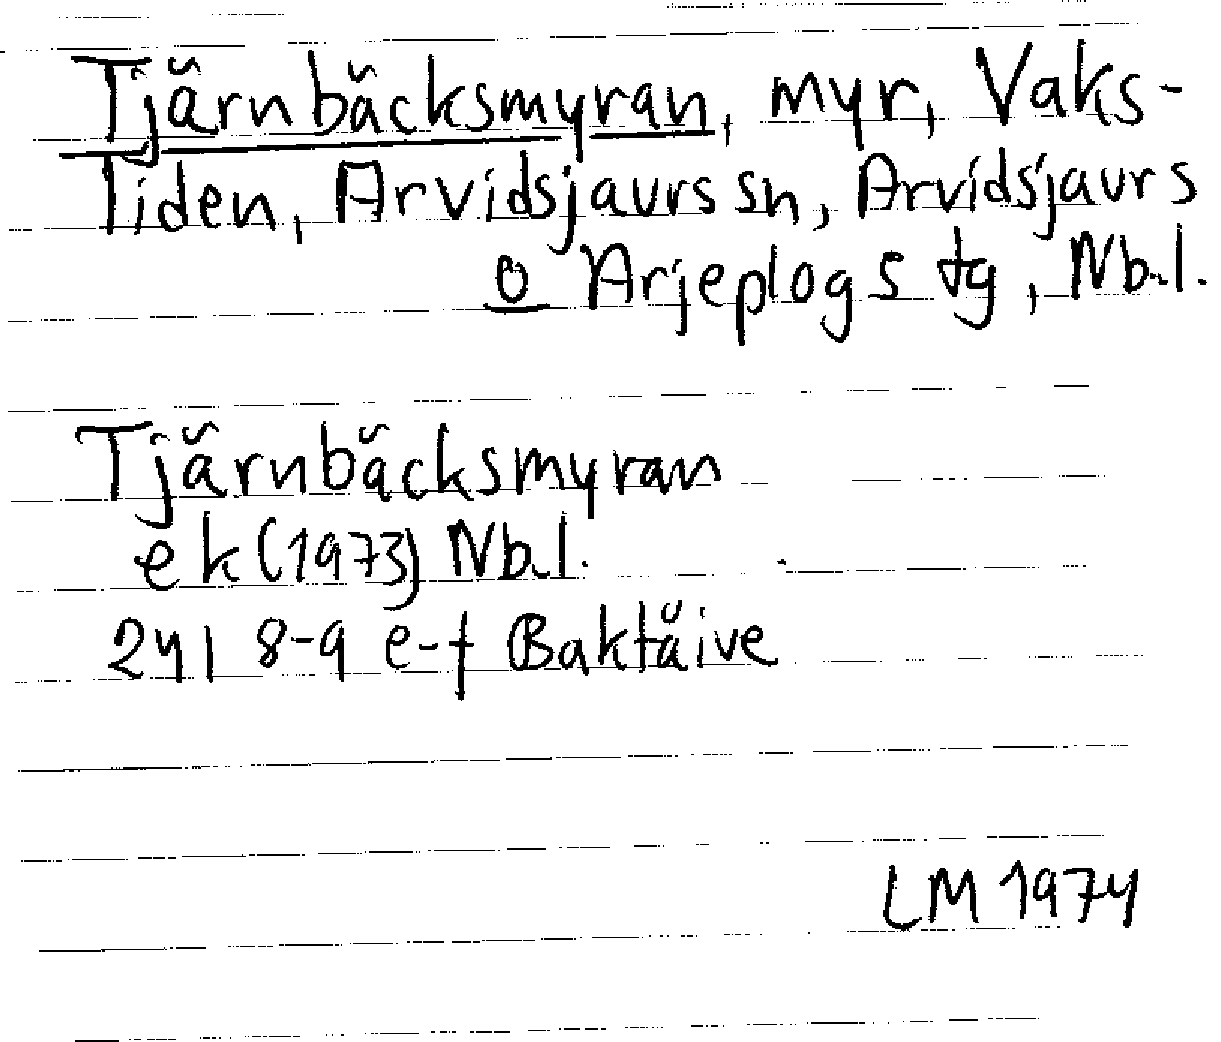 Tjärnbäcksmyran, myr, Vaks-
liden, Arvidsjaurs sn, Arvidsjaurs
o Arjeplogs tg, Nb.l.
Tjärnbäcksmyran
ek (1973) Nb.l.
24I 8-9 e-f Baktåive
LM 1974